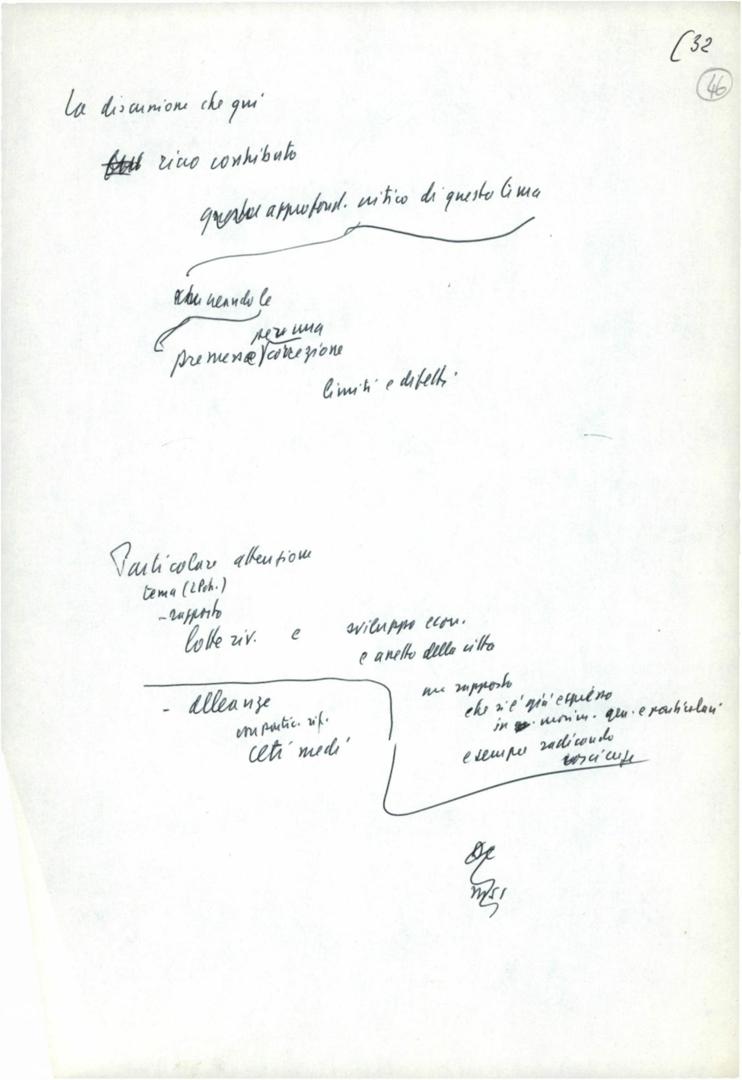 (32
46
La discussione che qui
ricco contributo
approfond. critico di questo tema
le
per una
premessa correzione
limiti e difetti
Particolare attenzione
tema (2 Ptk.)
- rapporto
lotte riv. e sviluppo econ.
e assetto della città
- alleanze
con partic. rif.
ceti medi
un rapporto
che si è già espresso
in movim. gen. e particolari
e sempre radicando
coscienze
DC
MSI